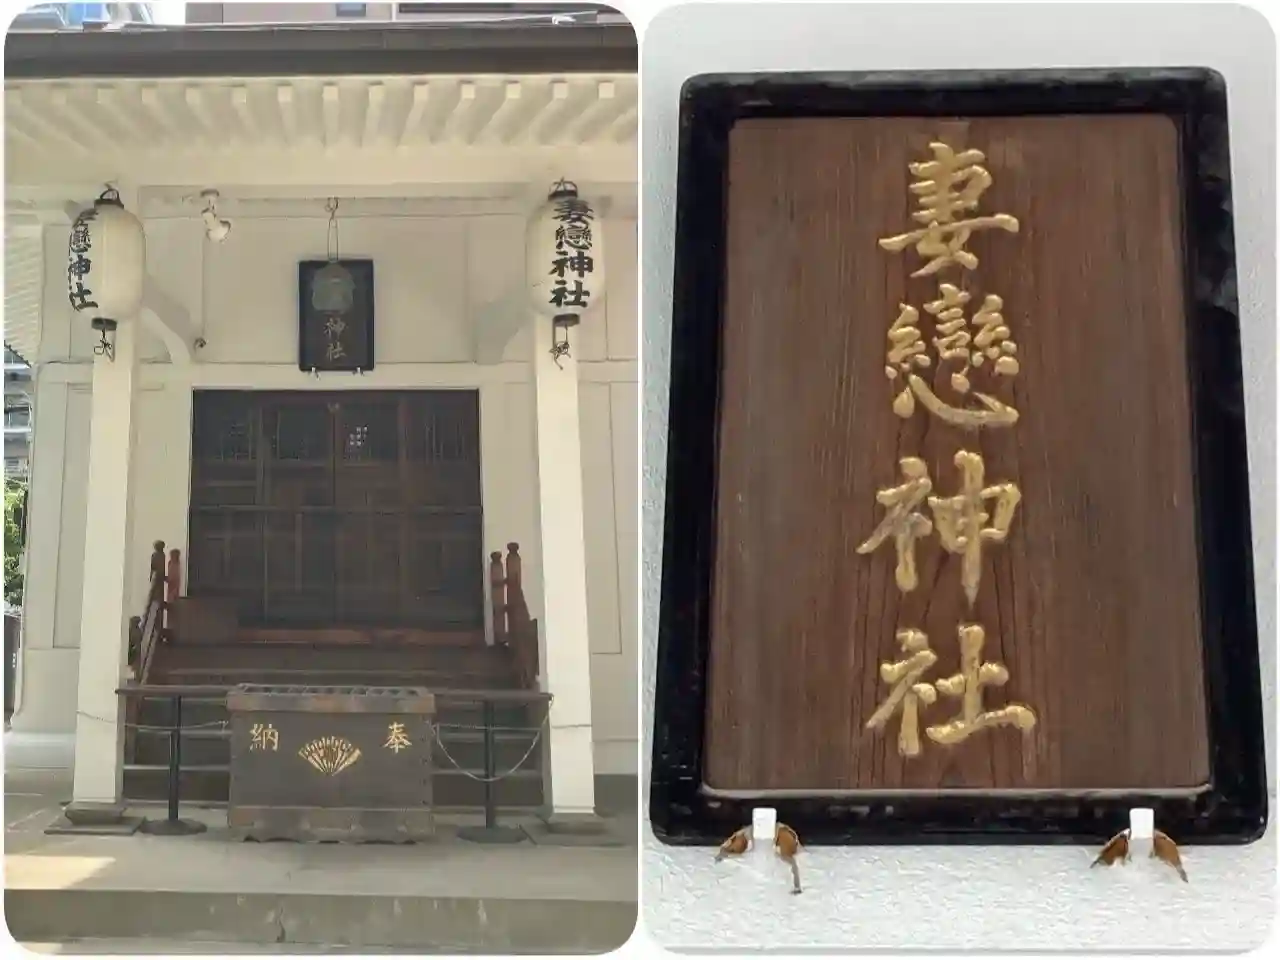 妻戀神社
妻戀神社
神社
奉納
妻戀神社